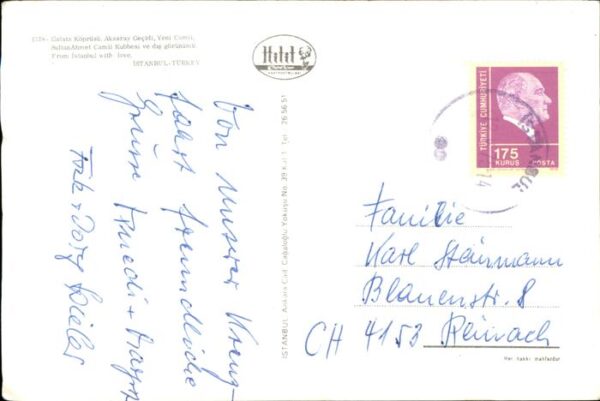 Galata Köprüsü, Aksaray Geçidi, Yeni Camii,
SultanAhmet Camii Kubbesi ve dış görünüşü.
From Istanbul with love.
İSTANBUL-TÜRKEY
Hitit
Von unserer Kreuz-
fahrt freundliche
Grüsse Friedi + 
Fritz + Dory
İSTANBUL Ankara Cad. Cağaloğlu Yokuşu No. 39 Kat 1 Tel: 26 56 51
TÜRKİYE CUMHURİYETİ
175
KURUŞ POSTA
İSTANBUL
74
Familie
Karl Steinmann
Blauenstr. 8
CH 4153 Reinach
Her hakkı mahfuzdur